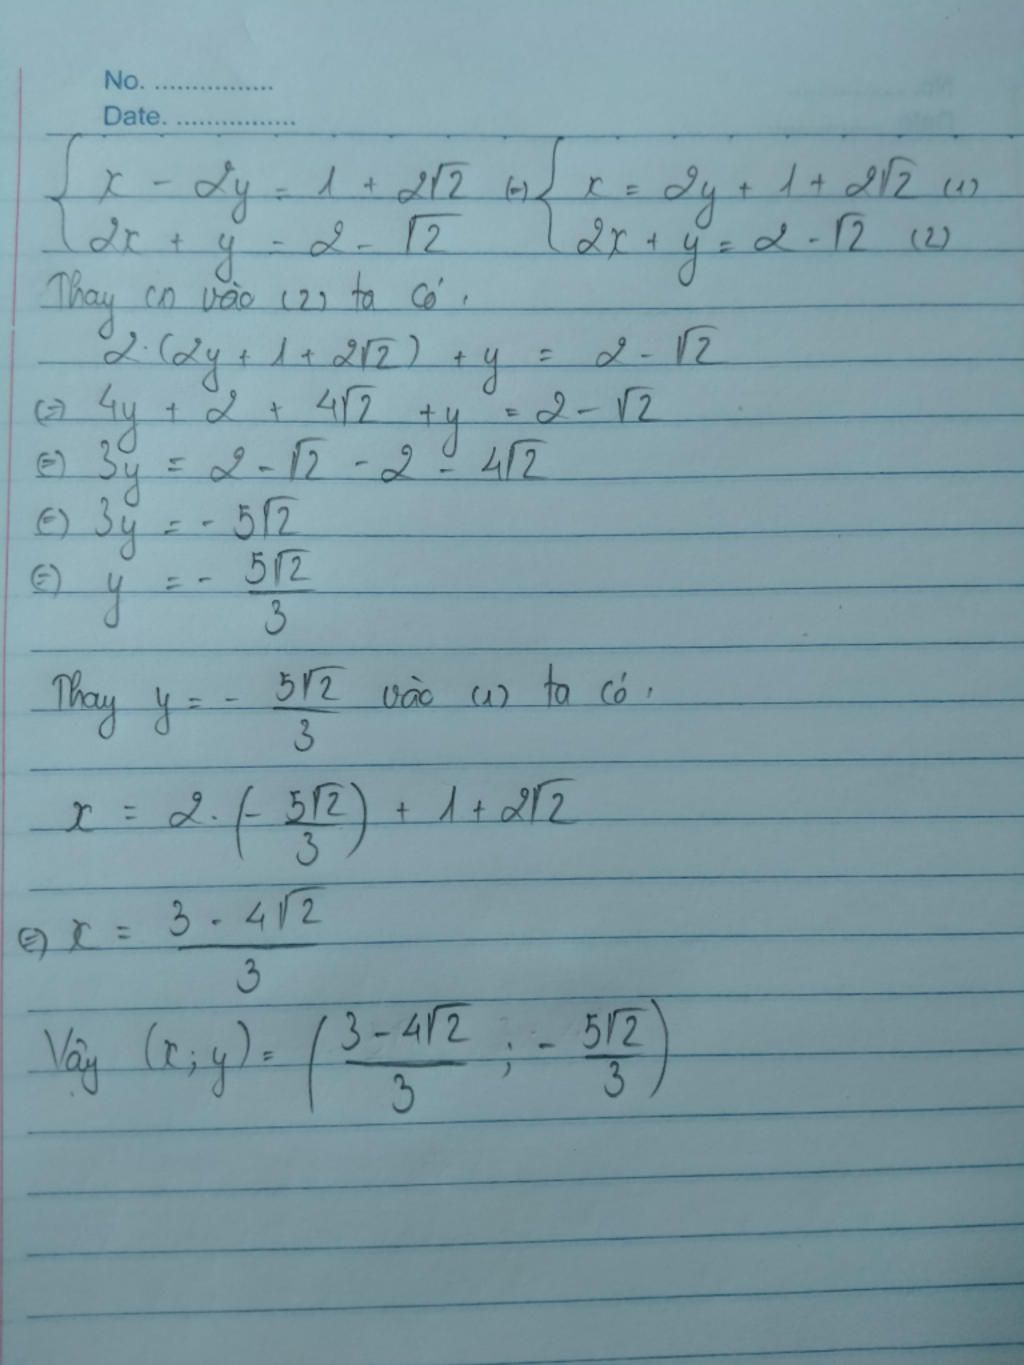 No. ................
Date. ................
{ x - 2y = 1 + 2√2 (=) { x = 2y + 1 + 2√2 (1)
{ 2x + y = 2 - √2 { 2x + y = 2 - √2 (2)
Thay (1) vào (2) ta có.
2.(2y + 1 + 2√2) + y = 2 - √2
(=) 4y + 2 + 4√2 + y = 2 - √2
(=) 3y = 2 - √2 - 2 - 4√2
(=) 3y = - 5√2
(=) y = - 5√2/3
Thay y = - 5√2/3 vào (1) ta có.
x = 2.(- 5√2/3) + 1 + 2√2
(=) x = (3 - 4√2)/3
Vậy (x; y) = ((3 - 4√2)/3 ; - 5√2/3)